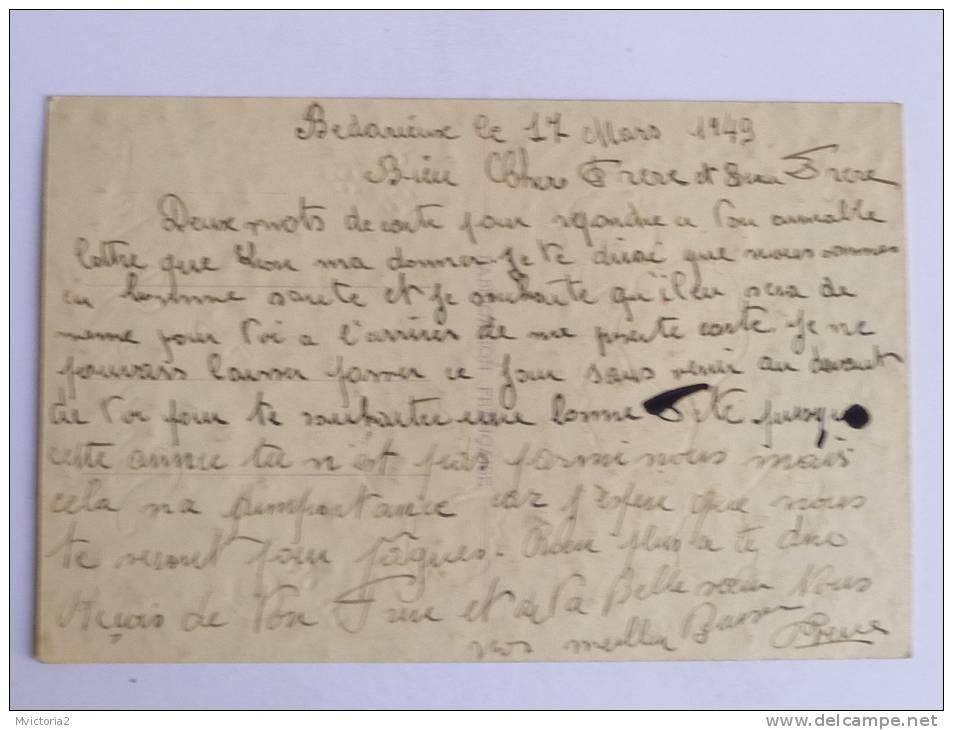 Bedarieux le 17 Mars 1949
Bien Cher Frere et Frere
Deux mots de carte pour repondre a Ton aimable
lettre que ma donner je te dirai que nous sommes
en bonne sante et je souhaite qu'il en sera de
meme pour Toi a l'arriver de ma carte je ne
pouvais laisser passer ce jour sans venir au devant
de Toi pour te souhaiter une bonne Fete puisque
cette annee tu n'est pas parmi nous mais
cela na d'importance car j'espere que nous
te veront pour pâques. Rien plus a te dire
Reçois de Ton Frere et de Ta Belle sœur Nous
nos meilleur Baiser
Mvictoria2
www.delcampe.net